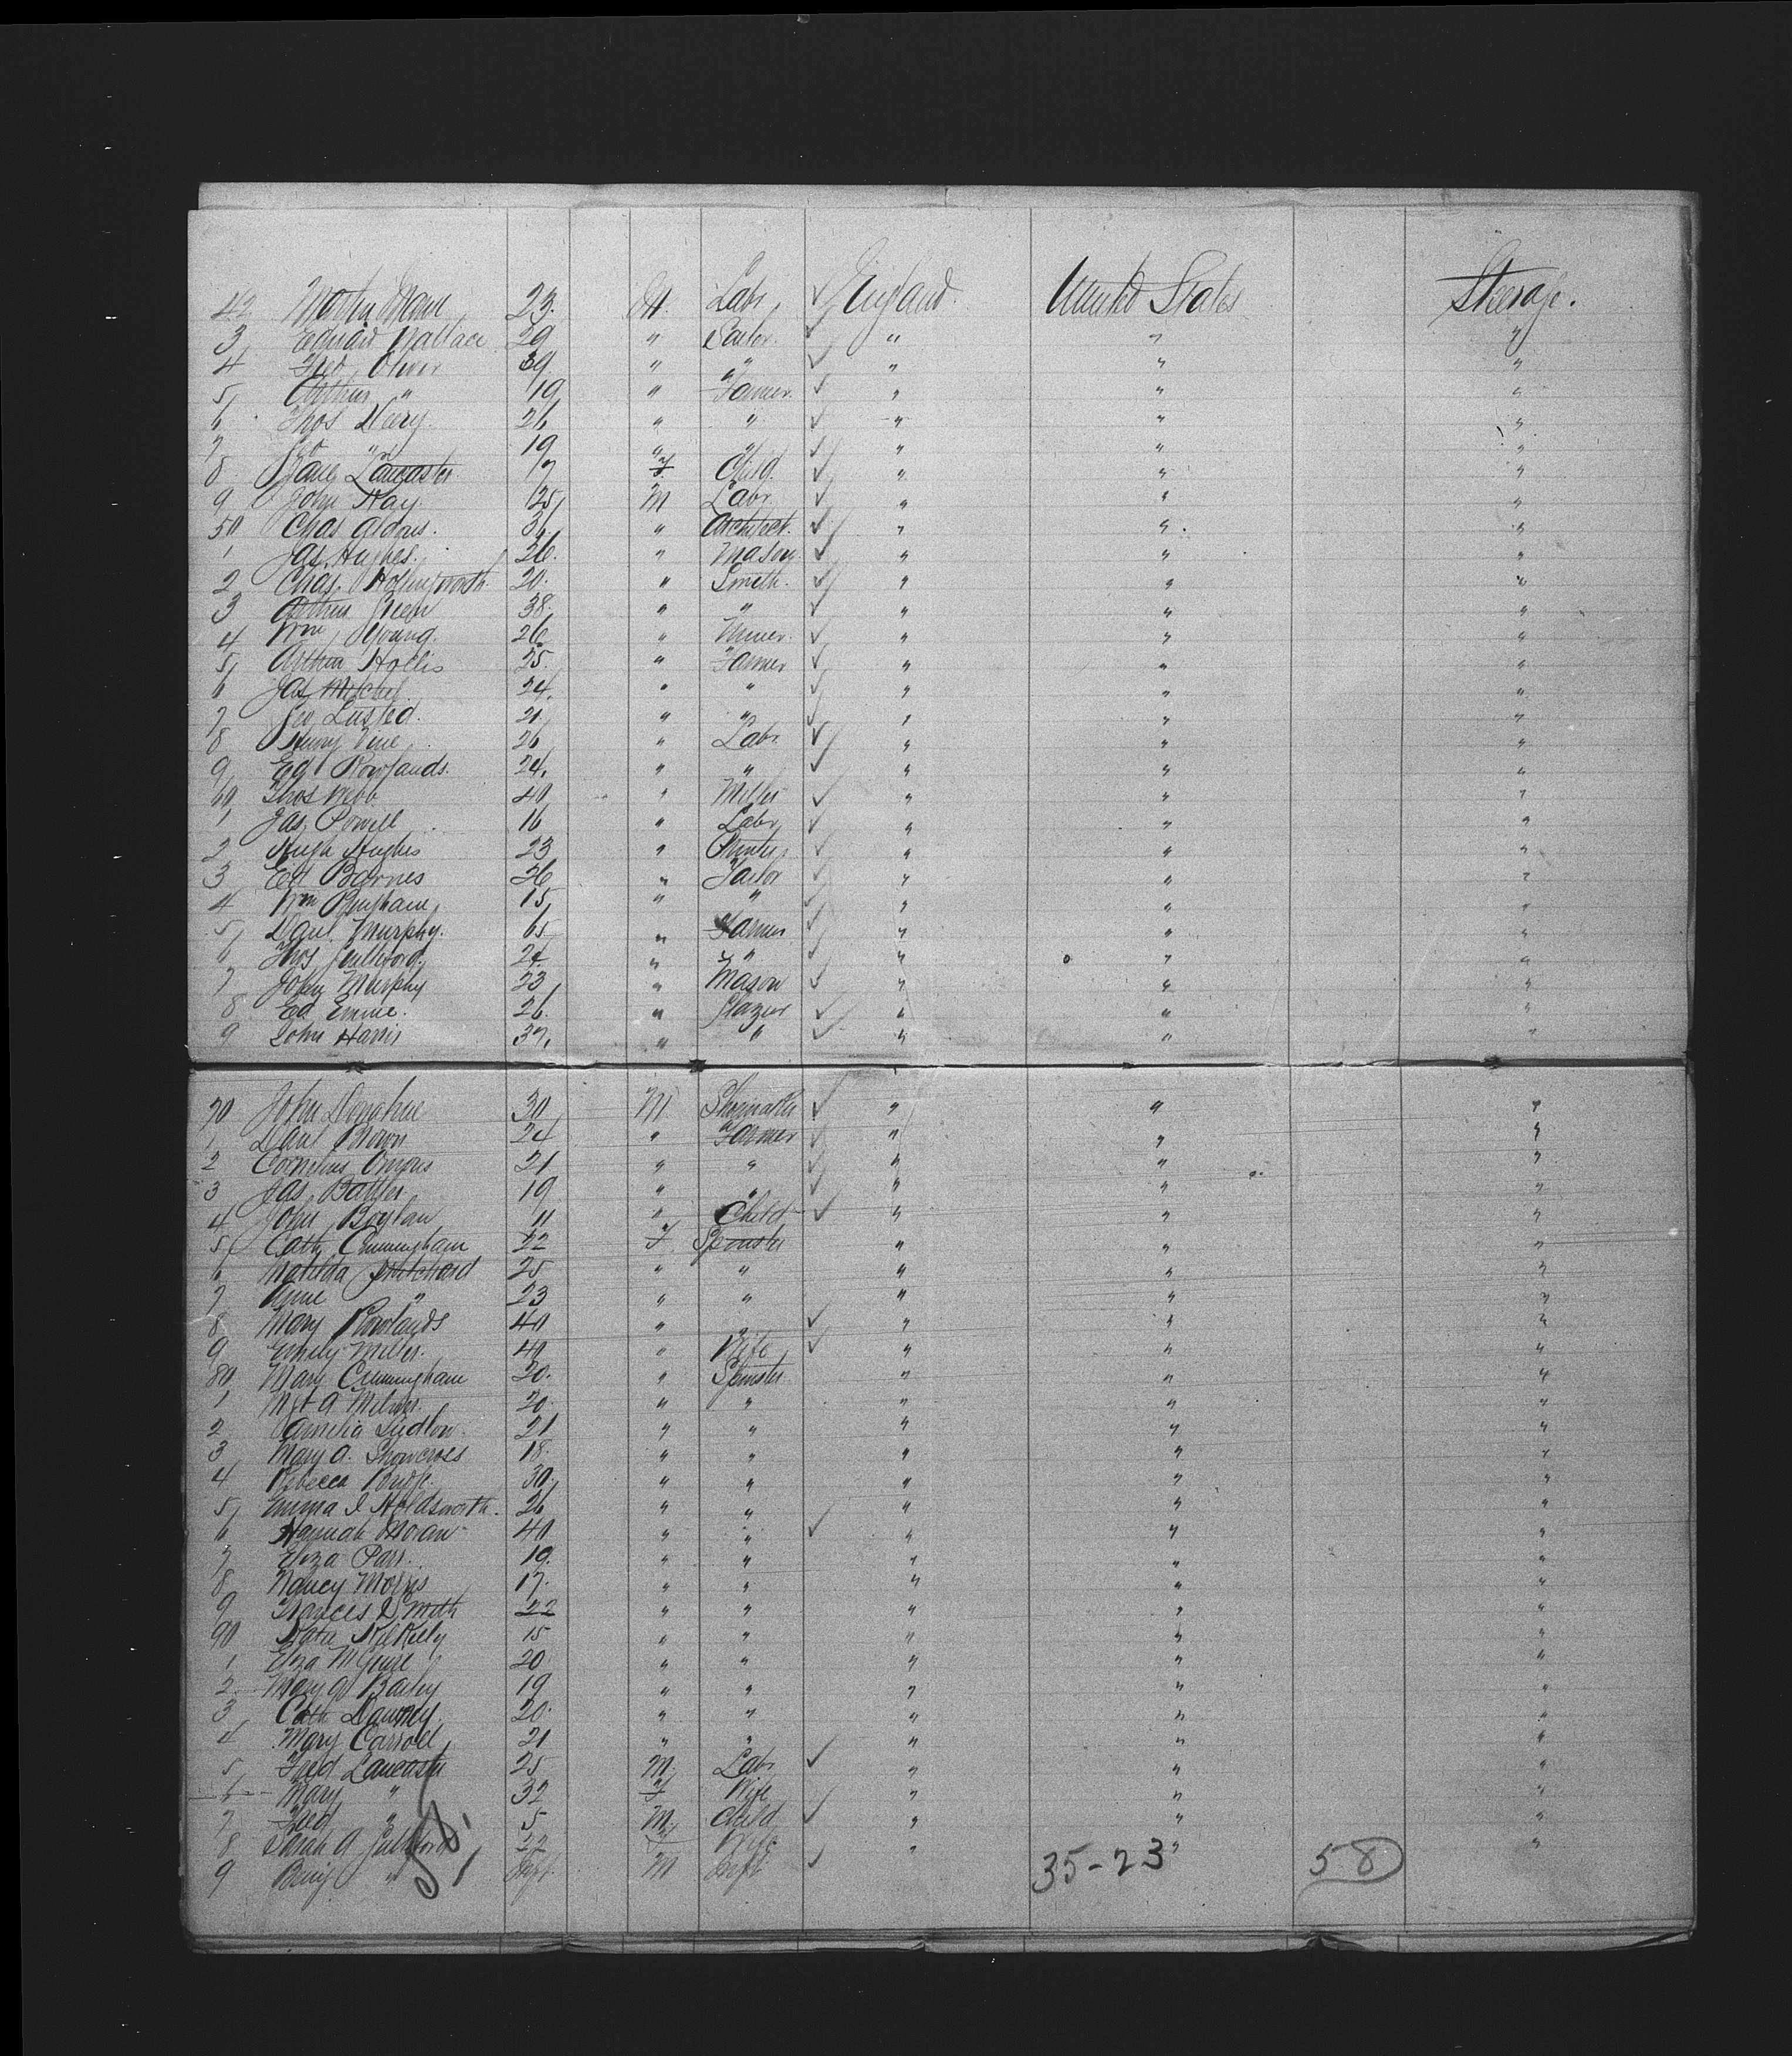 42 Martin 23. M. Labr. England United States Steerage.
3 Edward Wallace 29 " Sailor. " " "
4 Fred Oliver 39. " " " " "
5 Arthur " 19 " Farmer. " " "
6 Thos 26 " " " " "
7 Geo " 19 " " " " "
8 Jane Lancaster 7 F. Child. " " "
9 John Kay. 25 M Labr. " " "
50 Chas 3 " Architect. " " "
1 Jas. Hughes. 26. " Mason " " "
2 Chas. Hollingsworth 20. " Smith. " " "
3 Arthur Green 38. " " " " "
4 Wm Young. 26 " Miner. " " "
5 Arthur Hollis 25. " Farmer " " "
6 Jas Mitchel. 24. " " " " "
7 Geo Lusted. 21 " " " " "
8 Henry Vine 26 " Labr. " " "
9 Ed Rowlands. 24. " " " " "
60 Thos Webb 40 " Miller " " "
1 Jas. Powell 16 " Labr " " "
2 Hugh Hughes 23 " Printer " " "
3 Ed Barnes 26 " Tailor " " "
4 Wm Bingham 15 " " " " "
5 Danl. Murphy. 65 " Farmer " " "
6 Thos 24. " " " " "
7 John Murphy 23 " Mason " " "
8 Ed 26. " Glazier " " "
9 John Harris 37. " " " " "
70 John Donohue 30 M Shoemaker " " "
1 Danl Brown 24 " Farmer " " "
2 Cornelius 21 " " " " "
3 Jas. 19 " " " " "
4 John Boylan 11 " Child " " "
5 Cath Cunningham 22 F. Spinster " " "
6 Matilda Pritchard 25 " " " " "
7 Anne " 23 " " " " "
8 Mary Rowlands 40 " " " " "
9 Emily Miller. 40 " Wife " " "
80 Mary Cunningham 20. " Spinster " " "
1 Mgt A 20. " " " " "
2 Amelia Ludlow. 21 " " " " "
3 Mary A. Shawcross 18. " " " " "
4 Rebecca 30. " " " " "
5 Emma Holdsworth. 26 " " " " "
6 Hannah Moran 40 " " " " "
7 Eliza Parr. 19. " " " " "
8 Nancy Morris 17. " " " " "
9 Frances Smith 22 " " " " "
90 Kate 15 " " " " "
1 Eliza McGuire 20 " " " " "
2 Mary A Bailey 19 " " " " "
3 Cath 20. " " " " "
4 Mary Carroll 21 " " " " "
5 Fred Lancaster 25 M. Labr " " "
6 Mary " 32 F Wife " " "
7 Fred " 5 M Child " " "
8 Sarah A 22 F Wife " " "
9 Benj " Inft. M Inft
35-23 58
58